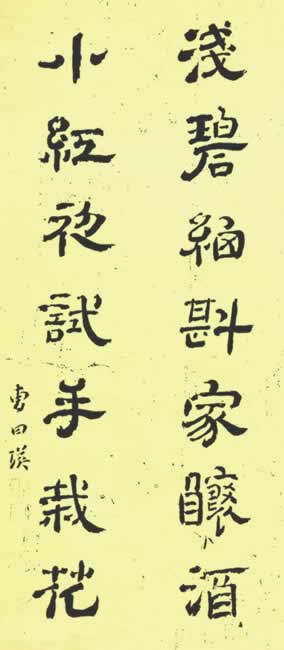 淺碧細斟家釀酒
小紅初試手栽花
曹日瑛